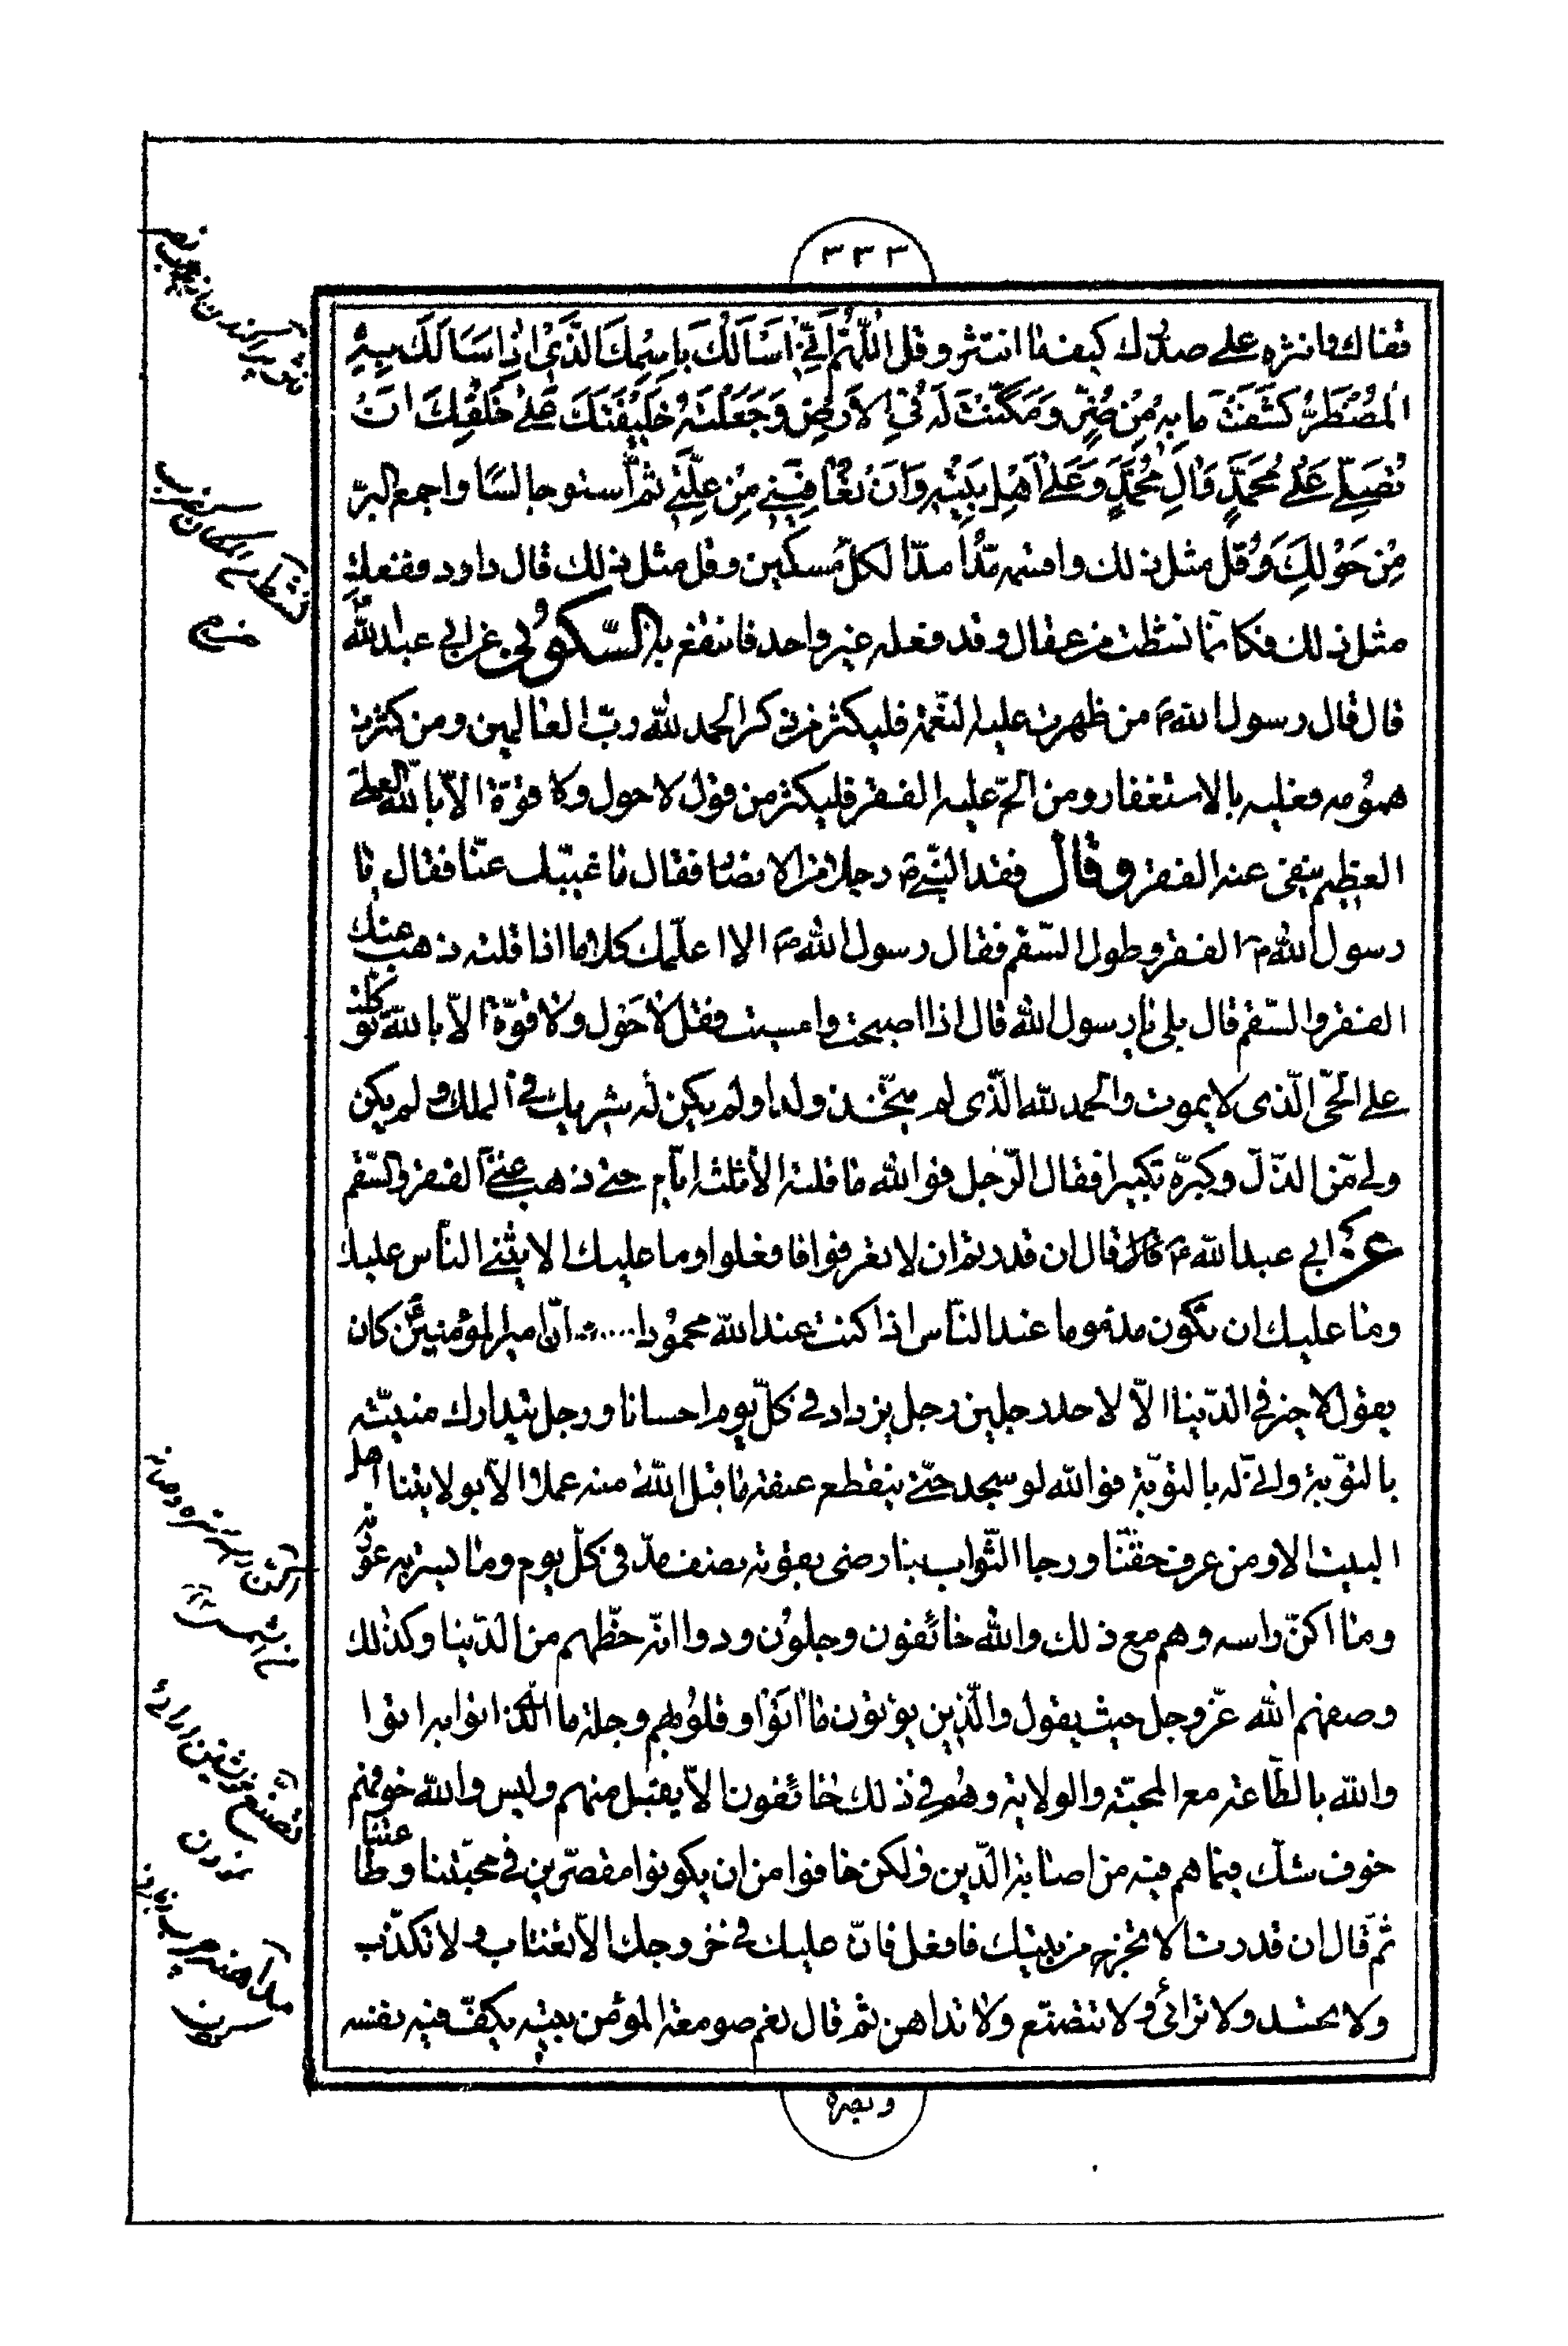 ٣٣٣
قفاك وانثره على صدرك كيفما انتثر وقل اَللّٰهُمَّ اِنّى اَسْاَلُكَ بِاسْمِكَ الَّذى اِذا سَاَلَكَ بِهِ
الْمُضْطَرُّ كَشَفْتَ ما بِهِ مِنْ ضُرٍّ وَمَكَّنْتَ لَهُ فِى الاَرْضِ وَجَعَلْتَهُ خَليفَتَكَ عَلى خَلْقِكَ اَنْ
تُصَلِّىَ عَلى مُحَمَّدٍ وَالِ مُحَمَّدٍ وَعَلى اَهْلِ بَيْتِهِ وَاَنْ تُعافِيَنى مِنْ عِلَّتى ثم استو جالسا واجمع البرّ
مِنْ حَوْلِكَ وَقُلْ مثل ذلك واقسمه مدّاً مدّا لكلّ مسكين وقل مثل ذلك قال داود ففعلت
مثل ذلك فكانّما نشطت من عقال وقد فعله غير واحد فانتفع به السّكونى عن ابى عبدالله
قال قال رسول الله ص من ظهرت عليه النّعمة فليكثر من ذكر الحمد لله ربّ العالمين ومن كثرت
همومه فعليه بالاستغفار ومن الحّ عليه الفقر فليكثر من قول لا حول ولا قوّة الّا بالله العلى
العظيم ينفى عنه الفقر وقال فقد النّبى ص رجلا من الانصار فقال ما غيبّك عنّا فقال يا
رسول الله ص الفقر وطول السّقم فقال رسول الله ص الا اعلّمك كلاما اذا قلته ذهب عنك
الفقر والسّقم قال بلى يا رسول الله قال اذا اصبحت وامسيت فقل لا حول ولا قوّة الّا بالله توكلت
على الحىّ الّذى لا يموت والحمد لله الّذى لم يتّخذ ولدا ولم يكن له شريك فى الملك ولم يكن
ولى مّن الذّلّ وكبرّه تكبيرا فقال الرّجل فو الله ما قلته الّا ثلثة ايّام حتى ذهب عنّى الفقر والسّقم
عن ابى عبدالله ع قال قال ان قدرتم ان لا تعرفوا فافعلوا وما عليك الا يثنى الناس عليك
وما عليك ان تكون مذموما عند النّاس اذا كنت عند الله محمودا .... انّ امير المؤمنين ع كان
يقول لا خير فى الدّنيا الّا لاحد رجلين رجل يزداد فى كلّ يوم احسانا ورجل يتدارك منيّته
بالتوّبة وانّى له بالتّوبة فو الله لو سجد حتّى ينقطع عنقه ما قبل الله منه عملا الّا بولايتنا اهل
البيت الا ومن عرف حقّنا ورجا الثّواب بنا رضى بقوته نصف مدّ فى كلّ يوم وما يستر به عورته
وما اكنّ راسه وهم مع ذلك والله خائفون وجلون ودوا انّه حظّهم من الدّنيا وكذلك
وصفهم الله عزّ وجل حيث يقول والّذين يؤتون ما اتوا وقلوبهم وجلة ما الّذى اتوا به اتوا
والله بالطّاعة مع المحبّة والولاية وهم فى ذلك خائفون الّا يقبل منهم وليس والله خوفهم
خوف شكّ فيما هم فيه من اصابة الدّين ولكن خافوا من ان يكونوا مقصّرين فى محبّتنا وطاعتنا
ثمّ قال ان قدرت الا تخرج من بيتك فافعل فانّ عليك فى خروجك الّا تغتاب و لا تكذّب
ولا تحسد ولا ترائى ولا تتصنّع ولا تداهن ثم قال نعم صومعة المؤمن بيته يكفّ فيه نفسه
وبصره